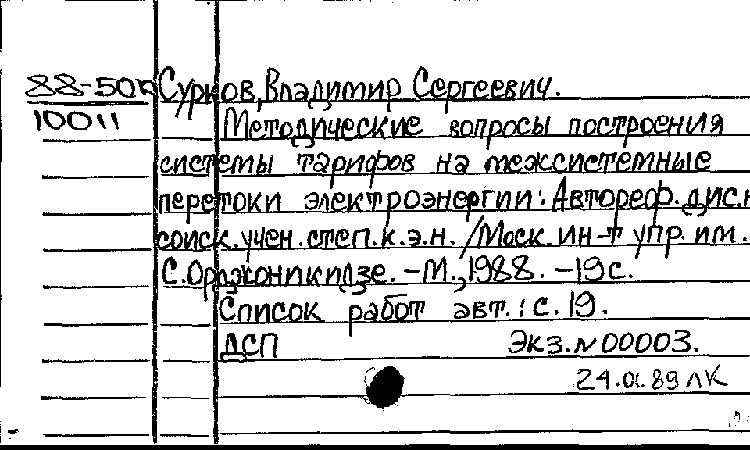 88-50к Сурков, Владимир Сергеевич.
10011 Методические вопросы построения
системы тарифов на межсистемные
перетоки электроэнергии: Автореф. дис. н
соиск. учен. степ. к. э. н. / Моск. ин-т упр. им.
С. Орджоникидзе. - М., 1988. - 19 с.
Список работ авт.: с. 19.
ДСП Экз. № 00003.
24.01.89 ЛК